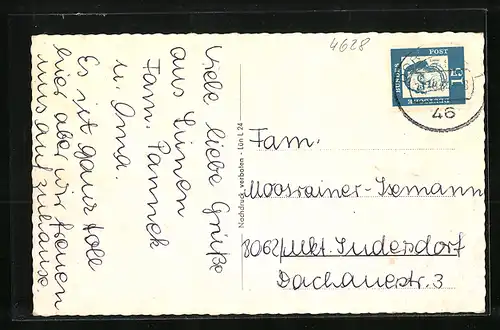 4628
Viele liebe Grüße
aus Lünen
Fam. Pannek
u. Oma.
Es ist ganz toll
hier aber wir freuen
uns auf zuhause.
Nachdruck verboten - Lün L 24
DEUTSCHE BUNDESPOST
15
46
Fam.
Moosrainer-Isemann
8062 Mkt. Indersdorf
Dachauerstr. 3